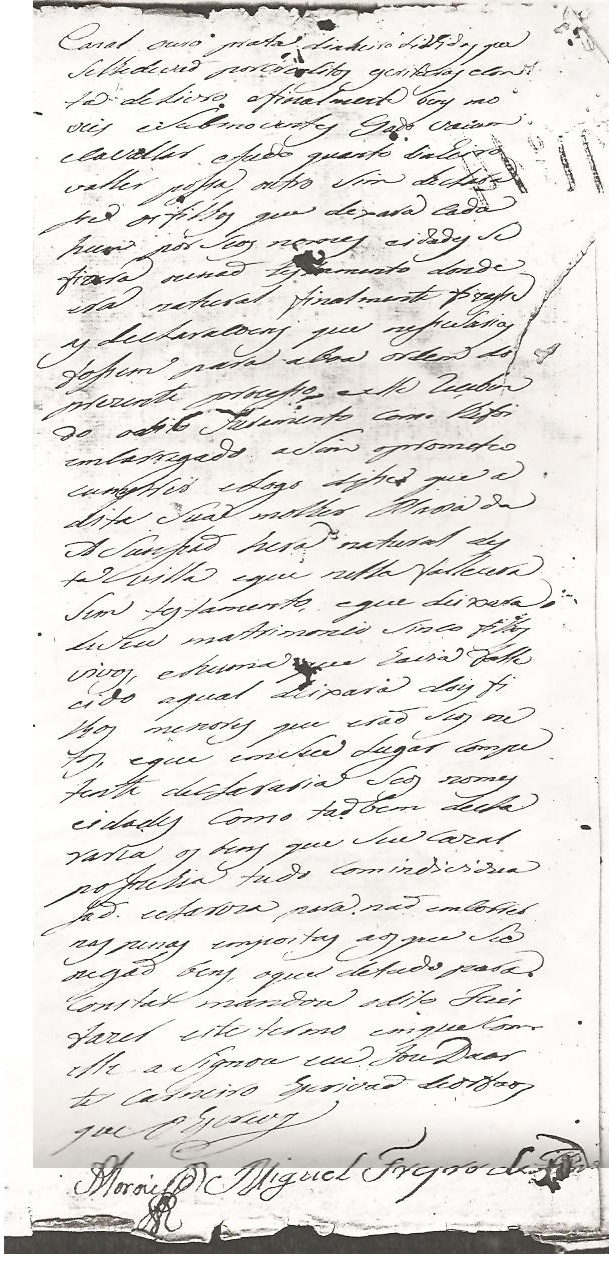 Casal ouro prata dinheiro dividas que
se lhe devaõ por creditos escrituras con
ta de Livro e finalmente bens mo
veis e Submoventes Gado vacum
e Cavallar e tudo quanto dinheiro
valler possa, outro Sim declara
se os filhos que deixara Cada
hum por Seos nomes e idades Se
fizera ou naõ testamento donde
era natural finalmente fizesse
as declaraçoens que nesseçarias
fossem para a boa ordem do
prezente processo e elle Receben
do o dito Juramento Como lhe foi
encarregado aSim prometeo
cumprir e logo disse que a
dita Sua molher Maria da
ASumpçaõ hera natural des
ta villa e que nella falecera
Sem testamento, e que deixara
de Seu matrimonio Sinco filhos
vivos, e huma que havia fale
cido a qual deixara dois fi
lhos menores que eraõ Seos ne
tos, e que em Seu Lugar compe
tente declararia Seos nomes
e idades Como taõbem decla
raria os bens que Seu Cazal
possuhia tudo com individua
çaõ e clareza para naõ encorrer
nas penas impostas aos que So
negaõ bens, e que de tudo para
Constar mandou o dito Juis
fazer este termo em que Com
elle aSignou eu Joze Duar
te Carneiro Escrivaõ de orfaos
que o Escrevy
Miguel Freyre de